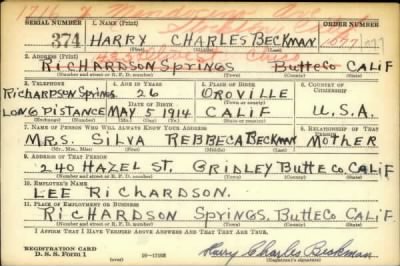 SERIAL NUMBER 1. NAME (Print) ORDER NUMBER
374 HARRY CHARLES BECKMAN 1077
(First) (Middle) (Last)
2. ADDRESS (Print)
RICHARDSON SPRINGS BUTTE CO CALIF
(Number and street or R. F. D. number) (Town) (County) (State)
3. TELEPHONE 4. AGE IN YEARS 5. PLACE OF BIRTH 6. COUNTRY OF CITIZENSHIP
RICHARDSON SPRINGS 26 OROVILLE
DATE OF BIRTH
LONG DISTANCE MAY 5 1914 CALIF U.S.A.
(Exchange) (Number) (Mo.) (Day) (Yr.) (State or country)
7. NAME OF PERSON WHO WILL ALWAYS KNOW YOUR ADDRESS 8. RELATIONSHIP OF THAT PERSON
MRS. SILVA REBBECA BECKMAN MOTHER
(Mr., Mrs., Miss) (First) (Middle) (Last)
9. ADDRESS OF THAT PERSON
240 HAZEL ST. GRIDLEY BUTTE CO. CALIF
(Number and street or R. F. D. number) (Town) (County) (State)
10. EMPLOYER'S NAME
LEE RICHARDSON.
11. PLACE OF EMPLOYMENT OR BUSINESS
RICHARDSON SPRINGS, BUTTE CO CALIF
(Number and street or R. F. D. number) (Town) (County) (State)
I AFFIRM THAT I HAVE VERIFIED ABOVE ANSWERS AND THAT THEY ARE TRUE.
REGISTRATION CARD
D. S. S. Form 1 (over) Harry Charles Beckman
(Registrant's signature)